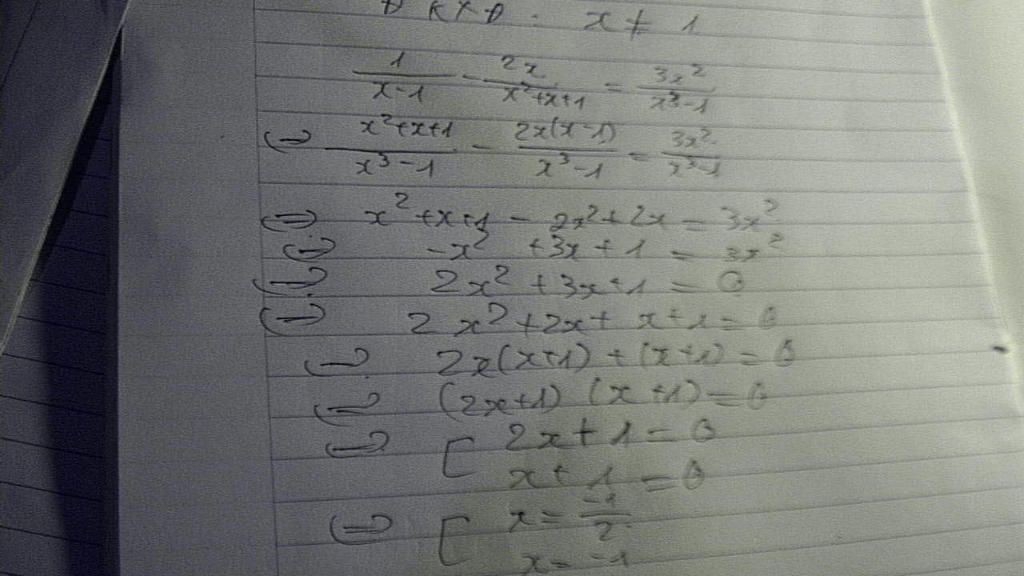 ĐKXĐ: x ≠ 1
1/(x-1) - 2x/(x²+x+1) = 3x²/(x³-1)
⇔ (x²+x+1)/(x³-1) - 2x(x-1)/(x³-1) = 3x²/(x³-1)
⇔ x²+x+1 - 2x²+2x = 3x²
⇔ -x² +3x+1 = 3x²
⇔ 2x²+3x+1 = 0
⇔ 2x²+2x+x+1 = 0
⇔ 2x(x+1)+(x+1) = 0
⇔ (2x+1)(x+1) = 0
⇔ [ 2x+1 = 0
x+1 = 0
⇔ [ x = -1/2
x = -1